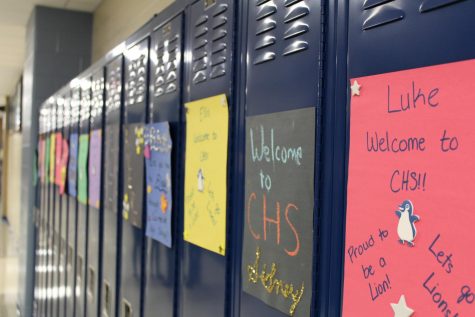 Luke
Welcome to
CHS!!
Proud to
be a
Lion!
Lets
go
Lions!
Welcome
to
CHS
Sidney
Welcome to
CHS